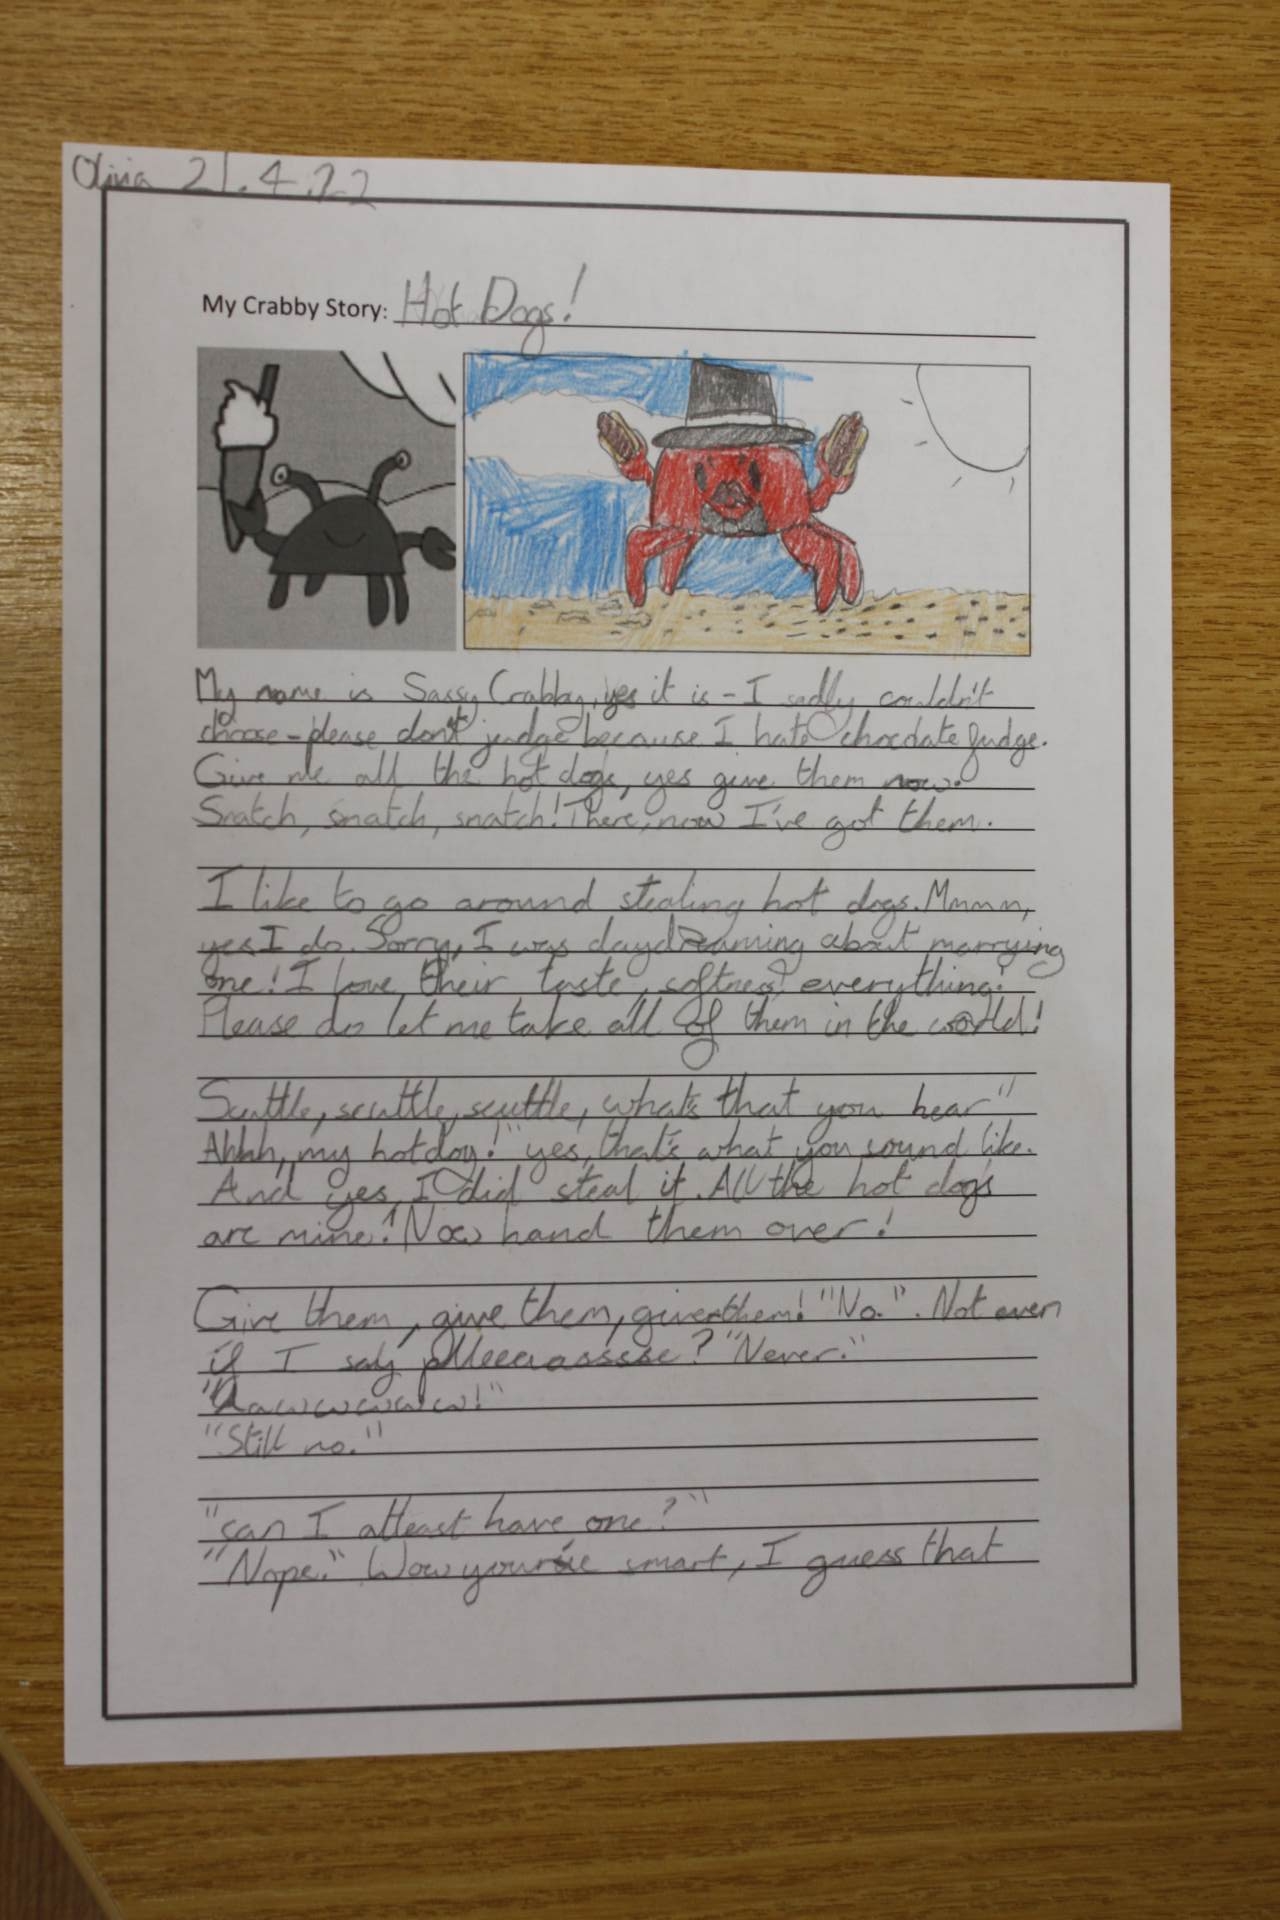 Olivia 21.4.22
My Crabby Story: Hot Dogs!
My name is Sassy Crabby, yes it is - I sadly couldn't
choose - please don't judge because I hate chocolate fudge.
Give me all the hot dogs, yes give them now.
Snatch, snatch, snatch! There, now I've got them.
I like to go around stealing hot dogs. Mmmm,
yes I do. Sorry, I was daydreaming about marrying
one! I love their taste, softness, everything!
Please do let me take all of them in the world!
Scuttle, scuttle, scuttle, what's that you hear"
Ahhh, my hotdog!" yes, that's what you sound like.
And yes, I did steal it. All the hot dogs
are mine! Now hand them over!
Give them, give them, give them! "No.". Not even
if I say plleeeaasssse? "Never."
"Aawwwww!"
"Still no."
"can I atleast have one?"
"Nope." Wow you're smart, I guess that